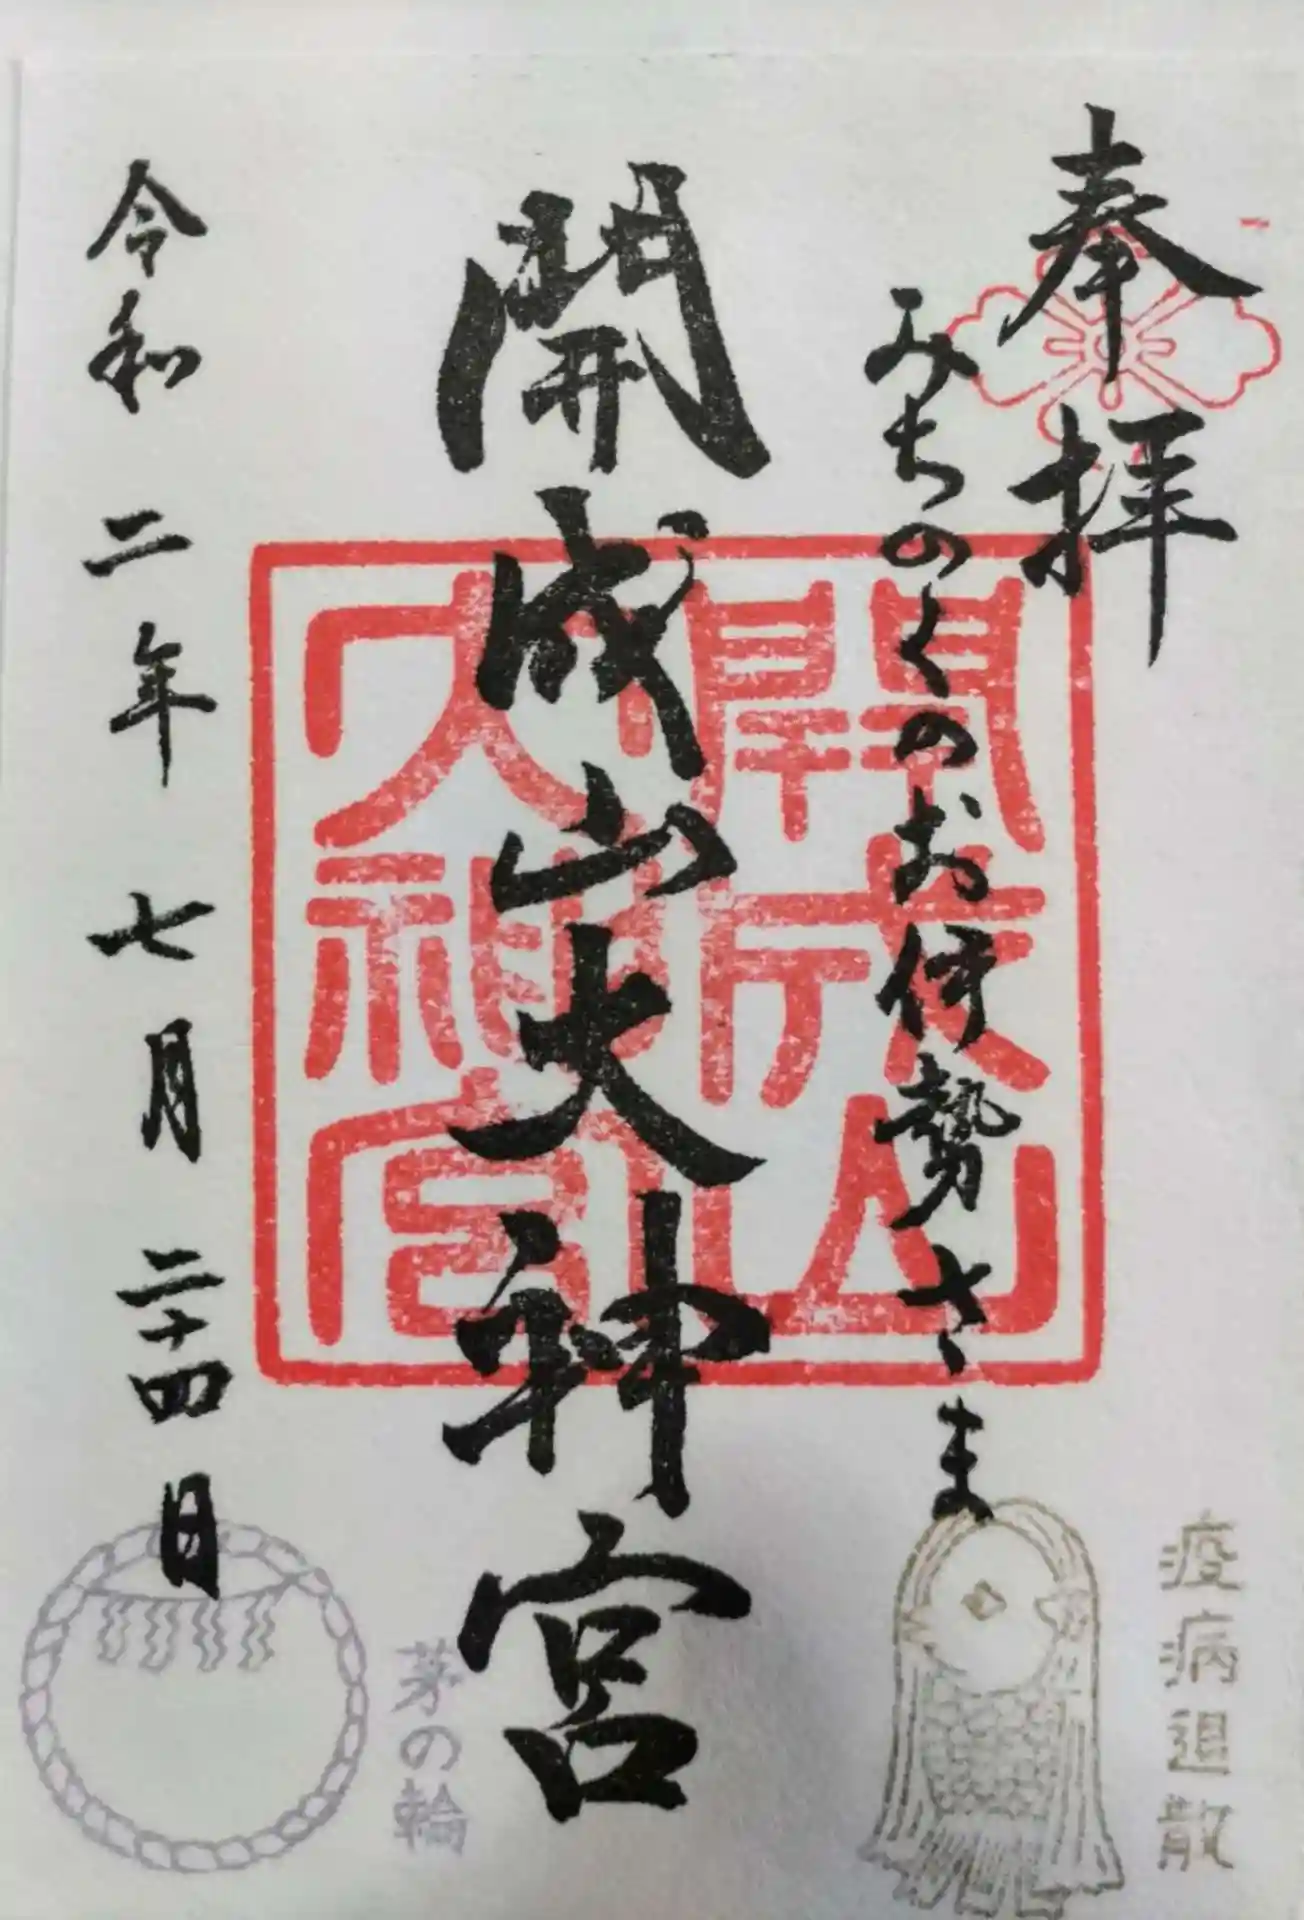 奉拝
みちのくのお伊勢さま
開成山大神宮
開成山
大神宮
令和二年七月二十四日
疫病退散
茅の輪